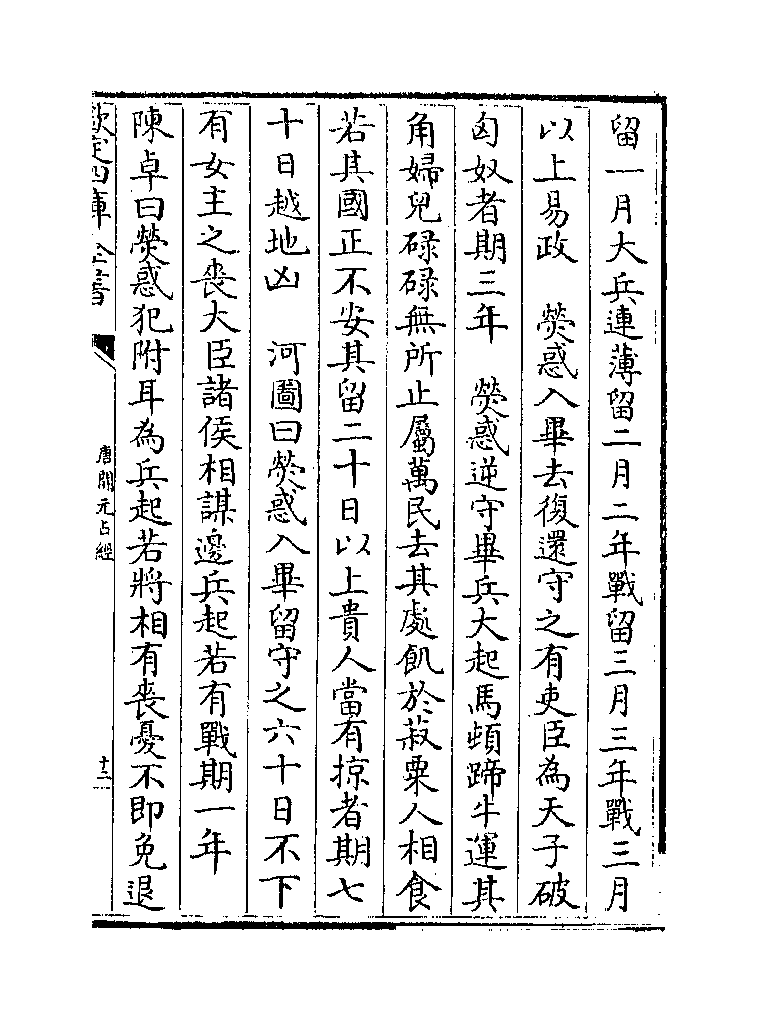 留一月大兵連薄留二月二年戰留三月三年戰三月
以上易政　熒惑入畢去復還守之有吏臣為天子破
匈奴者期三年　熒惑逆守畢兵大起馬頓蹄牛運其
角婦兒碌碌無所止屬萬民去其處飢於菽粟人相食
若其國正不安其留二十日以上貴人當有掠者期七
十日越地凶　河圖曰熒惑入畢留守之六十日不下
有女主之喪大臣諸侯相謀邊兵起若有戰期一年
陳卓曰熒惑犯附耳為兵起若將相有喪憂不即免退
欽定四庫全書
唐開元占經
十三